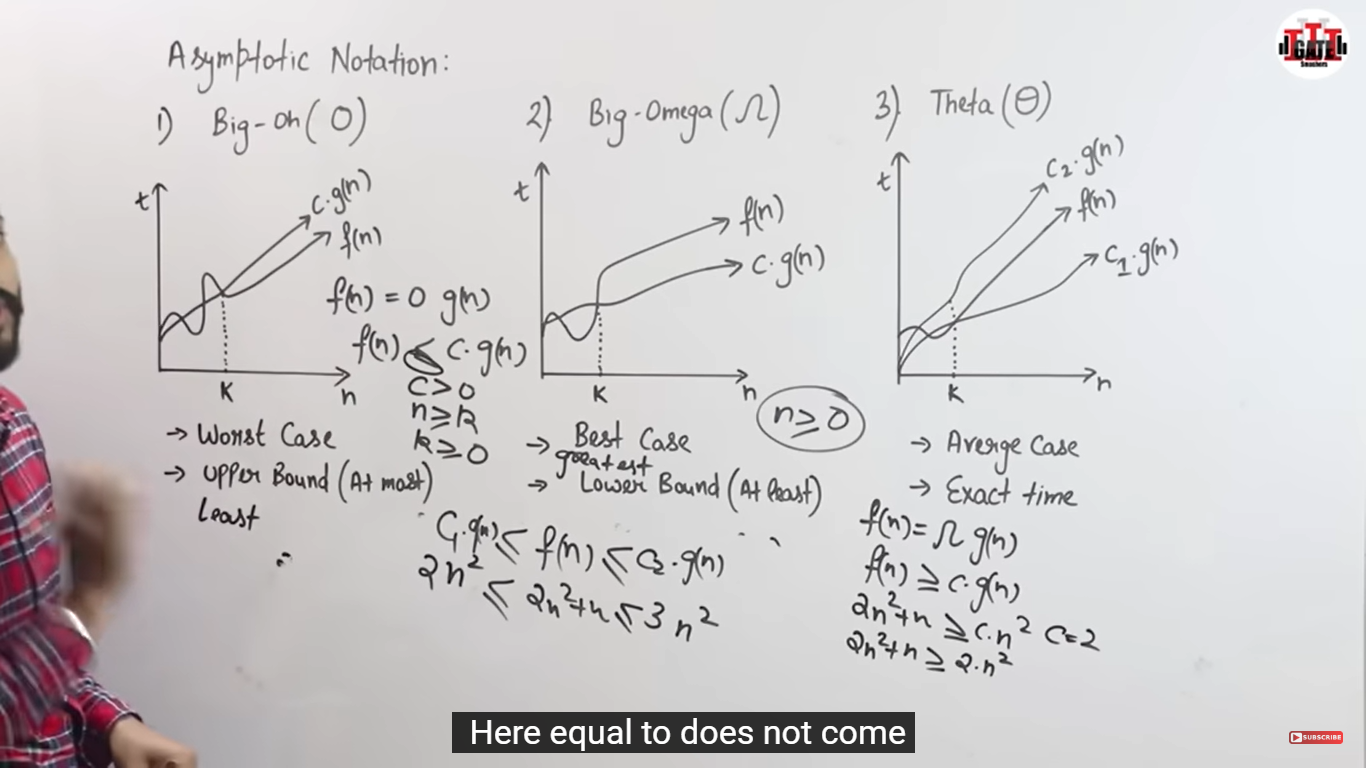 Asymptotic Notation:
1) Big-Oh(O)
t
c.g(n)
f(n)
K
n
f(n) = O g(n)
f(n) ≤ c.g(n)
c > 0
n ≥ k
k ≥ 0
→ Worst Case
→ Upper Bound (At most)
Least
2) Big-Omega(Ω)
t
f(n)
c.g(n)
K
n
n ≥ 0
→ Best Case
greatest
→ Lower Bound (At least)
C₁.g(n) ≤ f(n) ≤ C₂.g(n)
2n² ≤ 2n²+n ≤ 3n²
3) Theta(Θ)
t
C₂.g(n)
f(n)
C₁.g(n)
K
n
→ Averge Case
→ Exact time
f(n) = Ω g(n)
f(n) ≥ c.g(n)
2n²+n ≥ c.n² c=2
2n²+n ≥ 2.n²
GATE
Smashers
Here equal to does not come
SUBSCRIBE